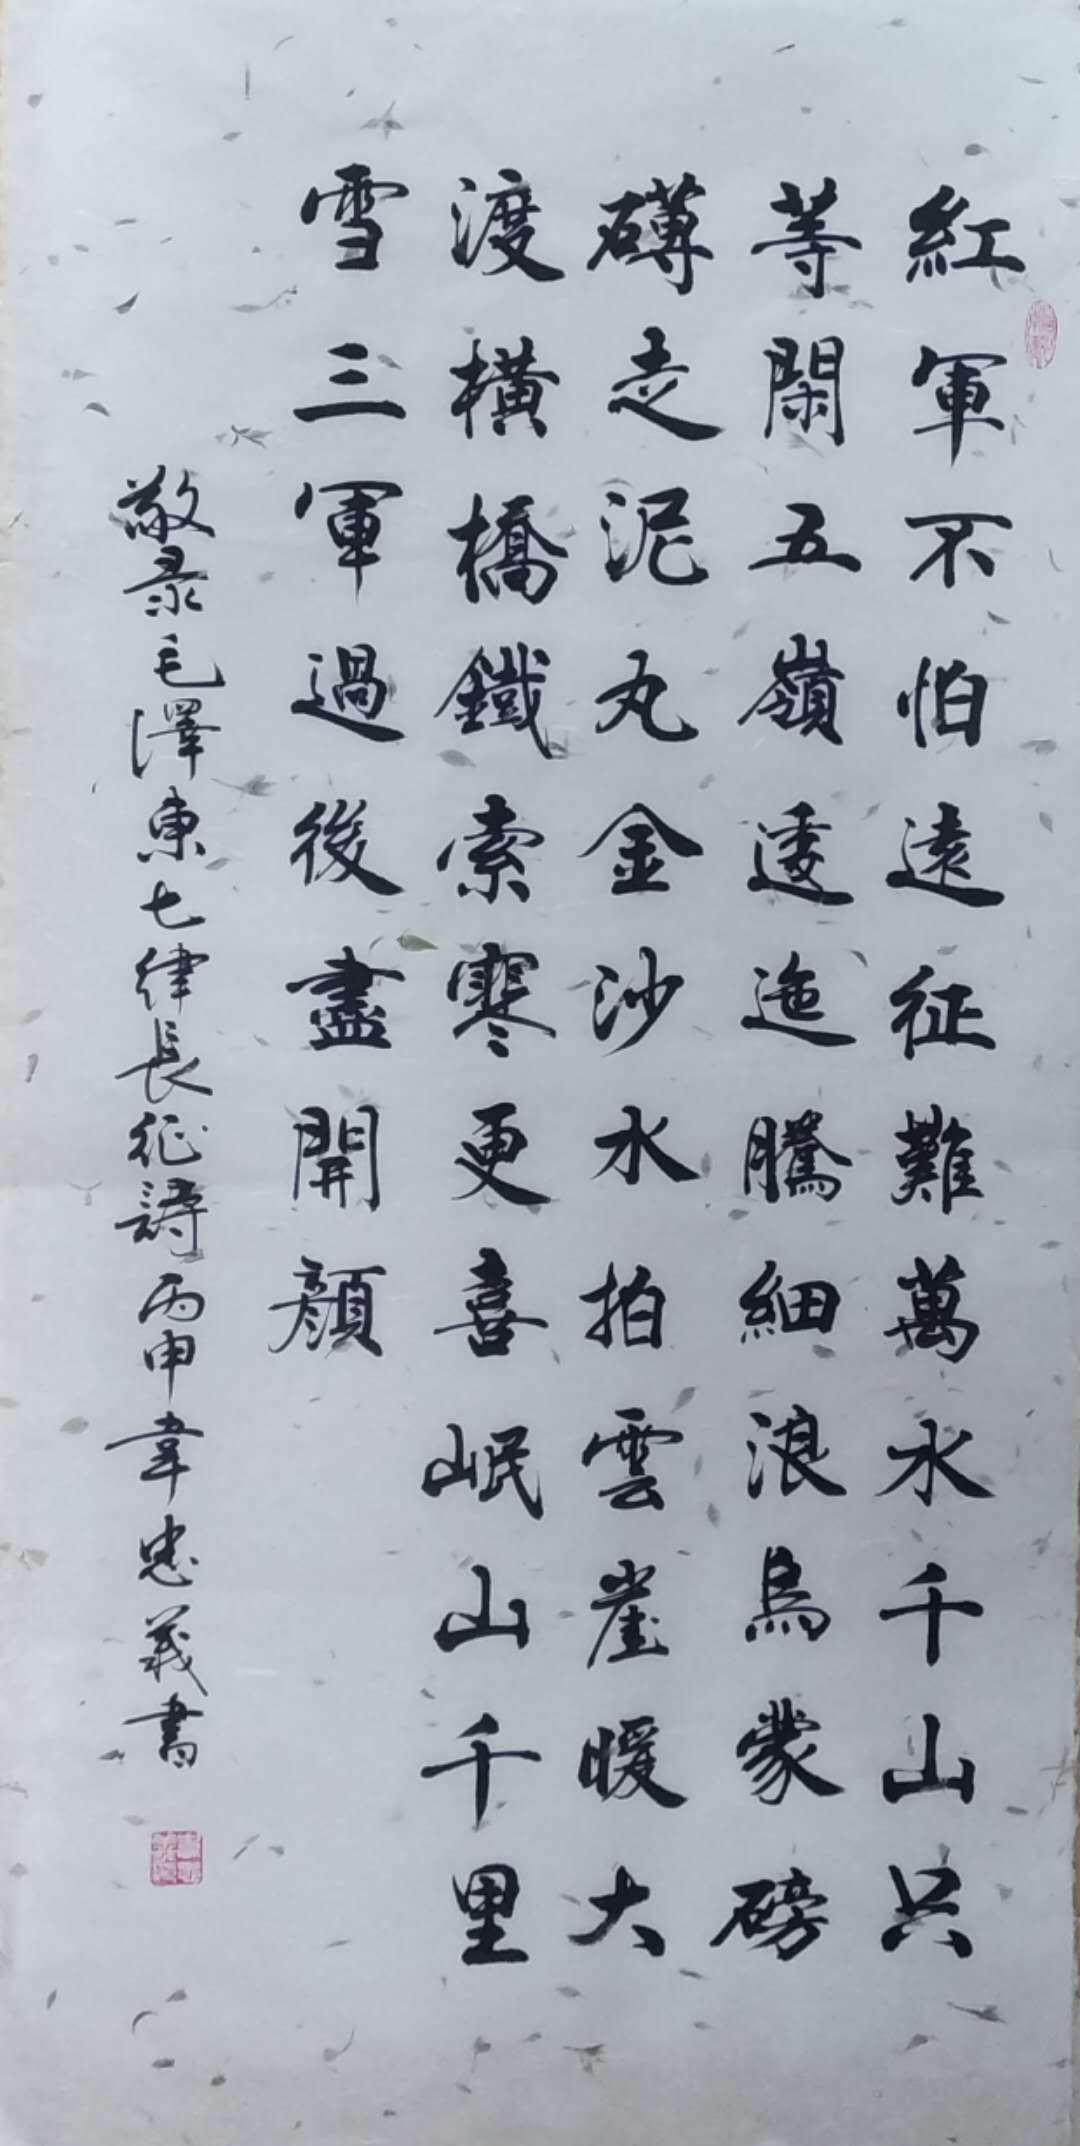 紅軍不怕遠征難萬水千山只
等閑五嶺逶迤騰細浪烏蒙磅
礡走泥丸金沙水拍雲崖暖大
渡橫橋鐵索寒更喜岷山千里
雪三軍過後盡開顏
敬录毛澤東七律長征詩丙申韋忠義書